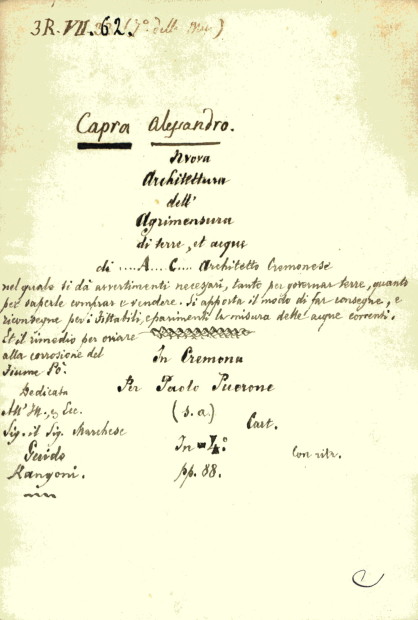 3R. VII. 62. (7° delle Misc)
Capra Alessandro.
Nuova
Architettura
dell'
Agrimensura
di terre, et acque
di ....A...C.... Architetto Cremonese
nel quale si dà avvertimenti necesari, tanto per governar terre, quanto
per saperle comprar e vendere. Si apporta il modo di far consegne, e
riconsegne per i fittabili, e parimenti la misura delle aque correnti.
Et il rimedio per oviare
alla corrosione del
Fiume Pò.
In Cremona
Per Paolo Puerone
(s.a)
Cart.
In-4.°
Con ritr.
pp. 88.
Dedicata
All' Ill., ed Ecc.
Sig. il Sig. Marchese
Guido
Rangoni.